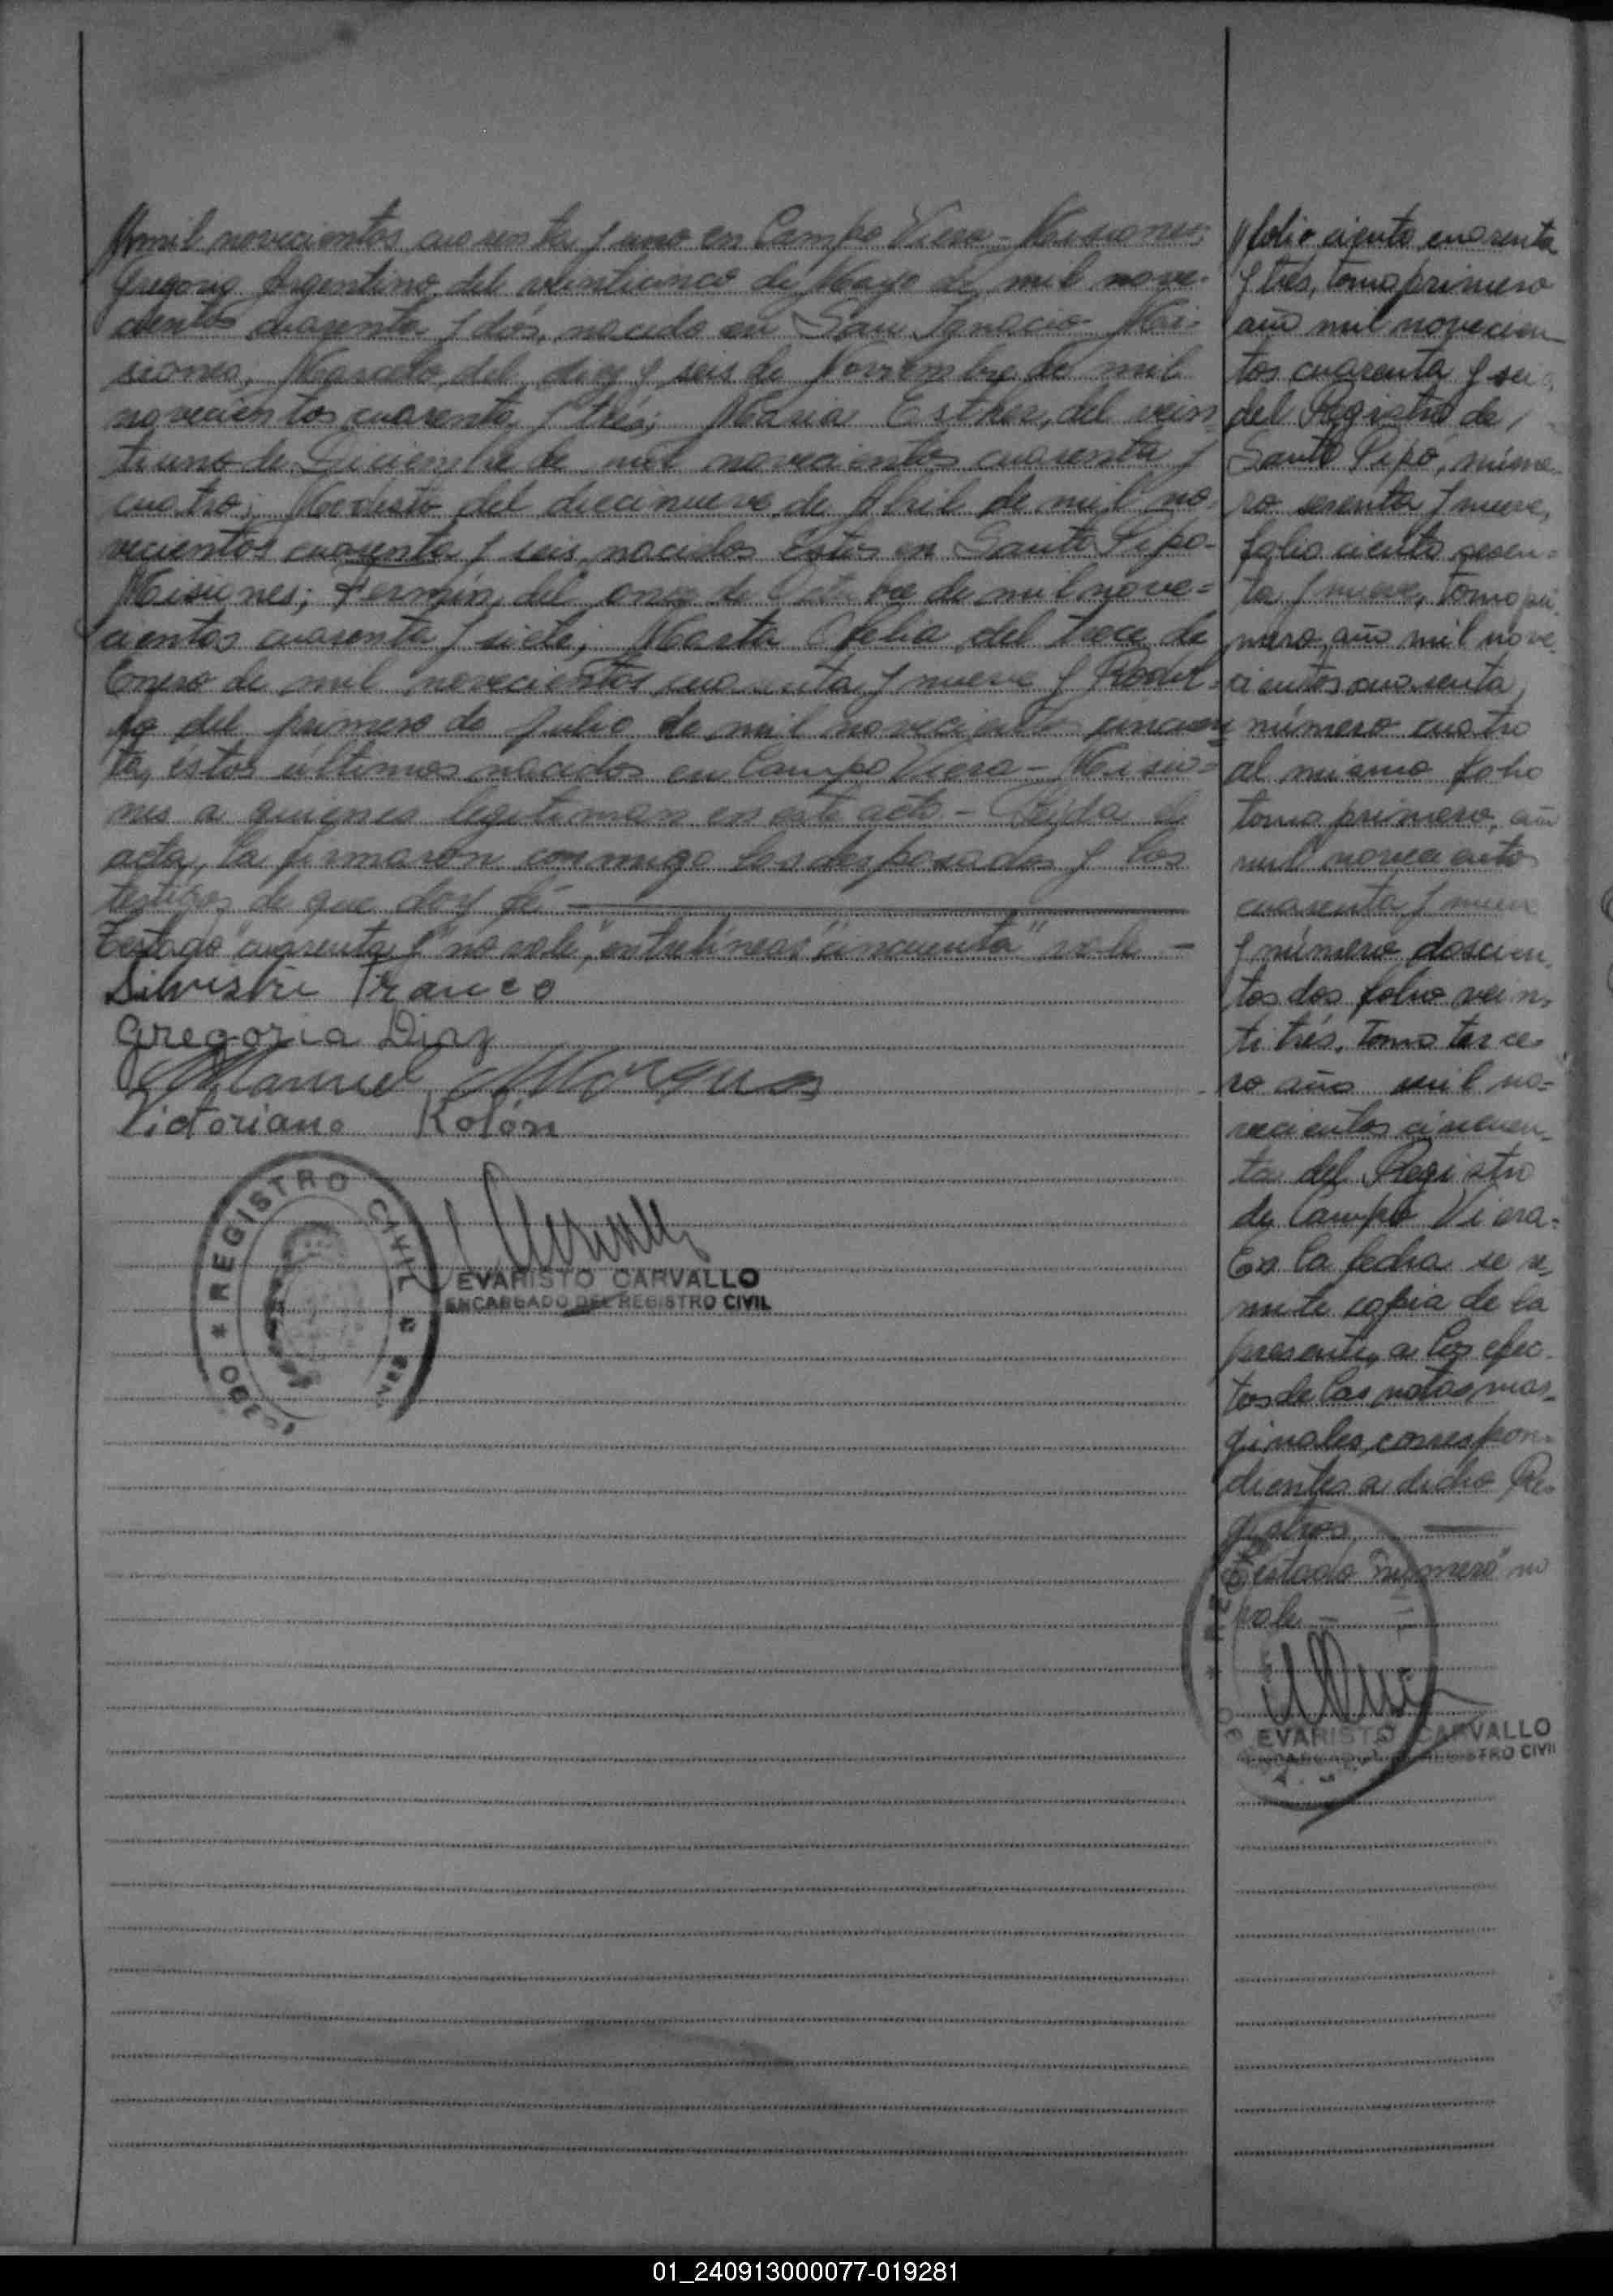 //mil novecientos cuarenta y uno en Campo Viera - Misiones;
Gregorio Argentino, del veinticinco de Mayo de mil nove-
cientos cuarenta y dos, nacido en San Ignacio - Mi-
siones, Marcelo, del diez y seis de Noviembre de mil
novecientos cuarenta y trés; Maria Esther, del vein
tiuno de Diciembre de mil novecientos cuarenta y
cuatro; Modesto del diecinueve de Abril de mil no-
vecientos cuarenta y seis, nacidos éstos en Santo Pipó-
Misiones; Fermín, del once de Octubre de mil nove=
cientos cuarenta y siete; Marta Ofelia, del trece de
Enero de mil novecientos cuarenta y nueve y
del primero de Julio de mil novecientos cincuen
ta, éstos últimos nacidos en Campo Viera - Misio=
nes a quienes legitiman en este acto - Leída el
acta, la firmaron conmigo los desposados y los
testigos de que doy fé
Testado "cuarenta y" no vale", entrelíneas "cincuenta" vale -
Silvestre Franco
Gregoria Diaz
Manuel
Victoriano Kolón
REGISTRO CIVIL
EVARISTO CARVALLO
ENCARGADO DEL REGISTRO CIVIL
//folio ciento cuarenta
y trés, tomo primero
año mil novecien
tos cuarenta y seis
del Registro de
Santo Pipó, núme-
ro sesenta y nueve,
folio ciento sesen=
ta y nueve, tomo pri
mero, año mil nove
cientos cuarenta,
número cuatro
al mismo folio
tomo primero, año
mil novecientos
cuarenta y nueve
y número doscien
tos dos folio vein-
titrés, tomo terce-
ro año mil no=
vecientos cincuen-
ta del Registro
de Campo Viera=
En la fecha se re-
mite copia de la
presente, a los efec-
tos de las notas mar-
ginales, correspon-
dientes a dicho Re-
gistros.
Testado "número" no
vale -
EVARISTO CARVALLO
ENCARGADO DEL REGISTRO CIVIL
01_240913000077-019281